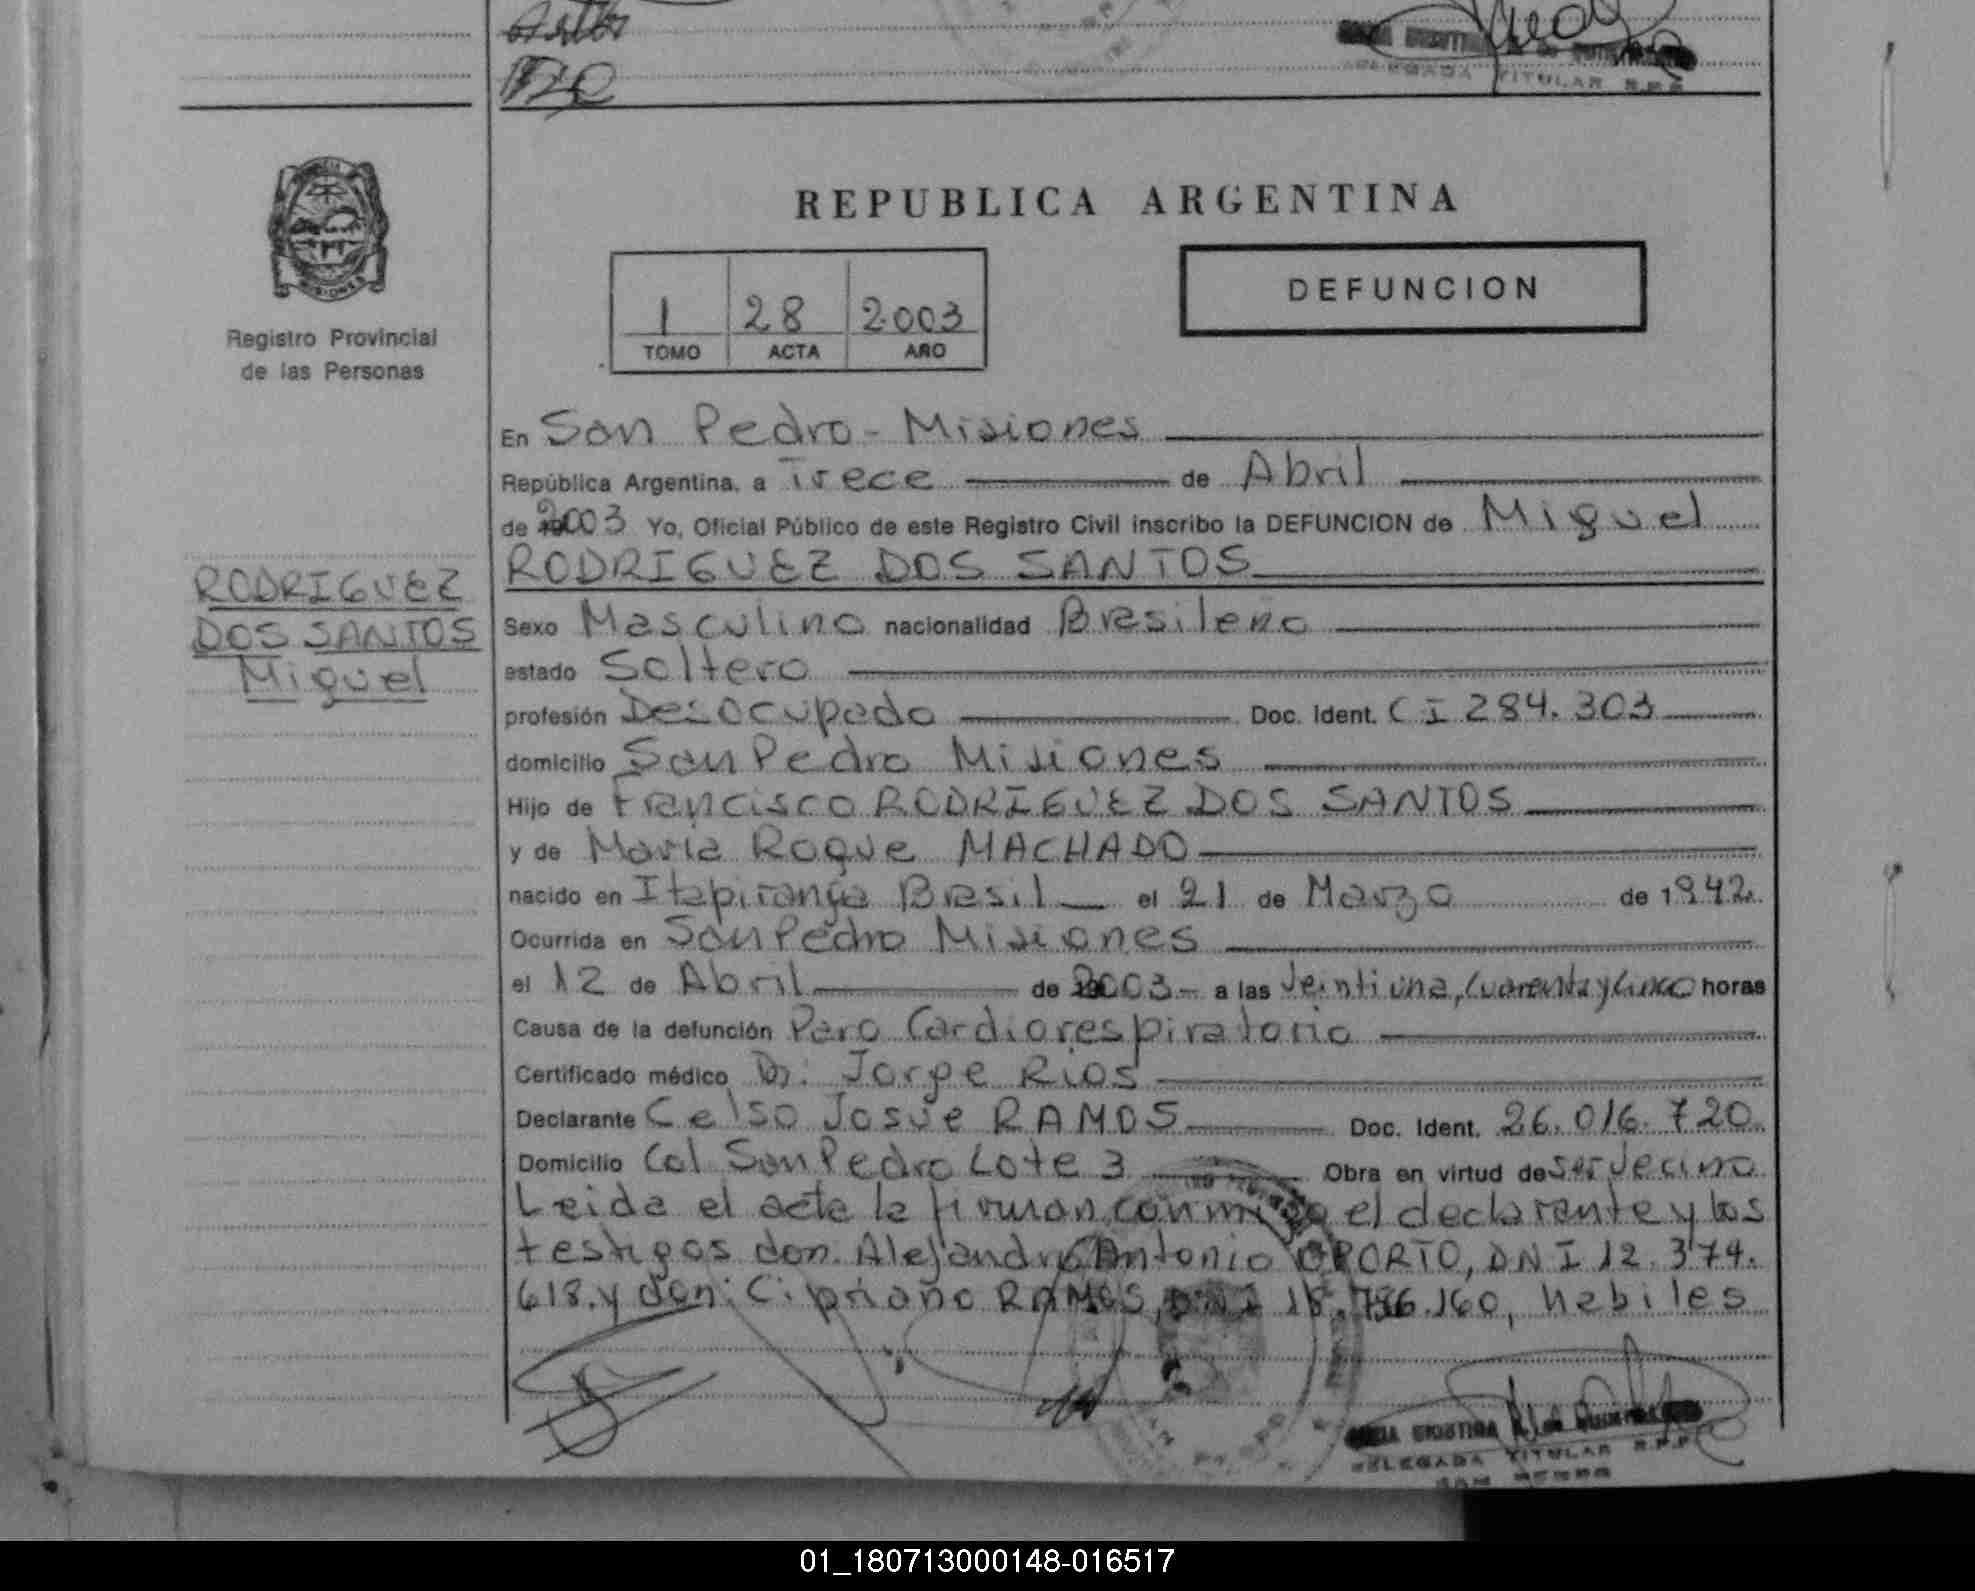 DELEGADA TITULAR R.P.P.
REPUBLICA ARGENTINA
1 28 2003
TOMO ACTA AÑO
DEFUNCION
Registro Provincial
de las Personas
RODRIGUEZ
DOS SANTOS
Miguel
En San Pedro - Misiones
República Argentina, a Trece de Abril
de 2003 Yo, Oficial Público de este Registro Civil inscribo la DEFUNCION de Miguel
RODRIGUEZ DOS SANTOS
Sexo Masculino nacionalidad Brasileño
estado Soltero
profesión Desocupado Doc. Ident. CI 284.303
domicilio San Pedro Misiones
Hijo de Francisco RODRIGUEZ DOS SANTOS
y de Maria Roque MACHADO
nacido en Itapiranga Brasil el 21 de Marzo de 1942.
Ocurrida en San Pedro Misiones
el 12 de Abril de 2003 a las Veintiuna, Cuarenta y Cinco horas
Causa de la defunción Paro Cardiorespiratorio
Certificado médico Dr. Jorge Rios
Declarante Celso Josue RAMOS Doc. Ident. 26.016.720.
Domicilio Col San Pedro Lote 3 Obra en virtud de ser vecino
Leida el acta la firman conmigo el declarante y los
testigos don. Alejandro Antonio OPORTO, DNI 12.374.
618. y don: Cipriano RAMOS, DNI 18.786.160, habiles
CRISTINA
DELEGADA TITULAR R.P.P.
SAN PEDRO
01_180713000148-016517